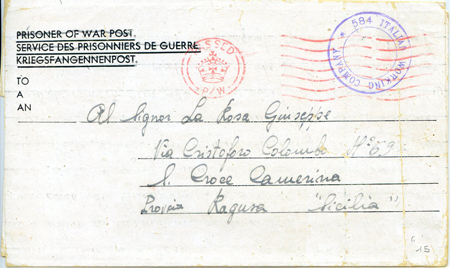 PRISONER OF WAR POST.
SERVICE DES PRISONNIERS DE GUERRE.
KRIEGSFANGENNENPOST.
PASSED
P/W
* 584 ITALIAN WORKING COMPANY
TO
A
AN
Al Signor La Rosa Giuseppe
Via Cristoforo Colombo N° 69
S. Croce Camerina
Provincia Ragusa "Sicilia"
15